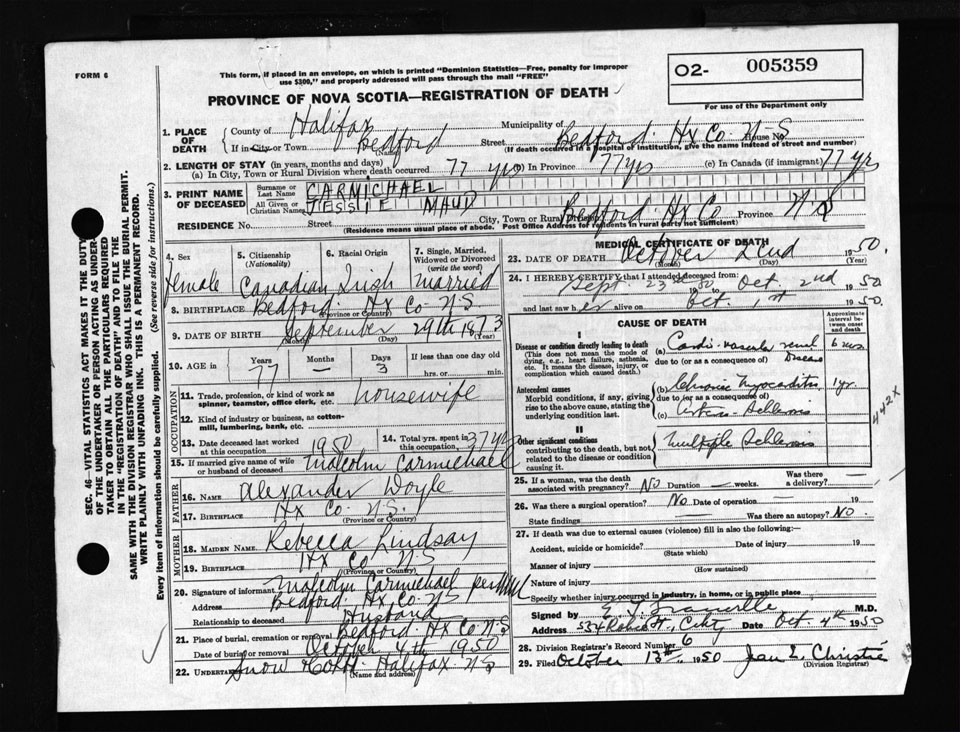 FORM 6
This form, if placed in an envelope, on which is printed "Dominion Statistics—Free, penalty for improper
use $300," and properly addressed will pass through the mail "FREE"
O2- 005359
For use of the Department only
PROVINCE OF NOVA SCOTIA—REGISTRATION OF DEATH
1. PLACE OF DEATH County of Halifax Municipality of
If in City or Town Bedford Street Bedford. Hx Co. N-S House No.
(If death occurred in a hospital or institution, give the name instead of street and number)
2. LENGTH OF STAY (in years, months and days)
(a) In City, Town or Rural Division where death occurred 77 yrs (b) In Province 77 yrs (c) In Canada (if immigrant) 77 yrs
3. PRINT NAME OF DECEASED Surname or Last Name CARMICHAEL
All Given or Christian Names JESSIE MAUD
RESIDENCE No. Street City, Town or Rural Division Bedford. Hx Co Province N S
(Residence means usual place of abode. Post Office Address for residents in rural parts not sufficient)
4. Sex Female
5. Citizenship (Nationality) Canadian
6. Racial Origin Irish
7. Single, Married, Widowed or Divorced (write the word) married
8. BIRTHPLACE Bedford. Hx Co N S
(Province or Country)
9. DATE OF BIRTH September 29th 1873
(Month) (Day) (Year)
10. AGE in Years 77 Months — Days 3 If less than one day old hrs. or min.
OCCUPATION
11. Trade, profession, or kind of work as spinner, teamster, office clerk, etc. housewife
12. Kind of industry or business, as cotton-mill, lumbering, bank, etc.
13. Date deceased last worked at this occupation 1950
14. Total yrs. spent in this occupation 37 yrs
15. If married give name of wife or husband of deceased Malcolm Carmichael
FATHER
16. NAME Alexander Doyle
17. BIRTHPLACE Hx Co. N.S.
(Province or Country)
MOTHER
18. MAIDEN NAME Rebecca Lindsay
19. BIRTHPLACE Hx Co N-S
(Province or Country)
20. Signature of informant Malcolm Carmichael per
Address Bedford. Hx Co. N S
Relationship to deceased Husband
21. Place of burial, cremation or removal Bedford. Hx Co N-S
Date of burial or removal October 4th 1950
22. UNDERTAKER Snow Halifax N S
(Name and address)
MEDICAL CERTIFICATE OF DEATH
23. DATE OF DEATH October 2nd 1950.
(Month) (Day) (Year)
24. I HEREBY CERTIFY that I attended deceased from:
Sept. 23rd 1950 to Oct. 2nd 1950
and last saw her alive on Oct. 1st 1950.
CAUSE OF DEATH
Approximate interval between onset and death
I
Disease or condition directly leading to death
(This does not mean the mode of dying, e.g., heart failure, asthenia, etc. It means the disease, injury, or complication which caused death.)
(a) Cardio-vascular renal disease 6 mos.
due to (or as a consequence of)
Antecedent causes
Morbid conditions, if any, giving rise to the above cause, stating the underlying condition last.
(b) Chronic Myocarditis 1 yr.
due to (or as a consequence of)
(c) Arterio-Sclerosis
442X
II
Other significant conditions
contributing to the death, but not related to the disease or condition causing it.
Multiple Sclerosis
25. If a woman, was the death associated with pregnancy? No Duration — weeks. Was there a delivery? —
26. Was there a surgical operation? No Date of operation — 19
State findings Was there an autopsy? No.
27. If death was due to external causes (violence) fill in also the following:—
Accident, suicide or homicide? Date of injury 19
(State which)
Manner of injury
(How sustained)
Nature of injury
Specify whether injury occurred in industry, in home, or in public place
Signed by E. Granville M.D.
Address 534 Robie St., City Date Oct. 4th 1950
28. Division Registrar's Record Number 6
29. Filed October 13th, 1950 Jean E. Christie
(Division Registrar)
SEC. 46—VITAL STATISTICS ACT MAKES IT THE DUTY
OF THE UNDERTAKER OR PERSON ACTING AS UNDER-
TAKER TO OBTAIN ALL THE PARTICULARS REQUIRED
IN THE "REGISTRATION OF DEATH" AND TO FILE THE
SAME WITH THE DIVISION REGISTRAR WHO SHALL ISSUE THE BURIAL PERMIT.
WRITE PLAINLY WITH UNFADING INK. THIS IS A PERMANENT RECORD.
Every item of information should be carefully supplied. (See reverse side for instructions.)